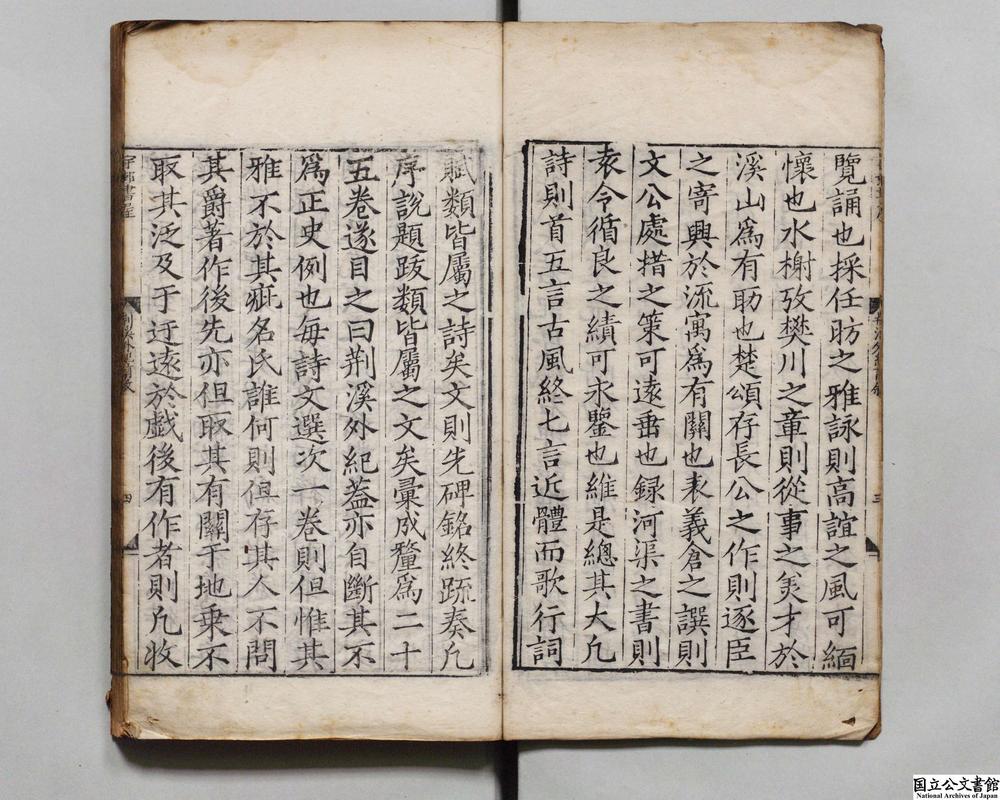 覽誦也採任昉之雅詠則高誼之風可緬
懷也水榭攷樊川之章則從事之羙才於
溪山爲有助也楚頌存長公之作則逐臣
之寄興於流寓爲有關也表義倉之譔則
文公處措之策可遠垂也録河渠之書則
袁令循良之績可永鑒也維是總其大凡
詩則首五言古風終七言近體而歌行詞
賦類皆屬之詩矣文則先碑銘終疏奏凡
序說題跋類皆屬之文矣彙成釐爲二十
五卷遂目之曰荆溪外紀葢亦自斷其不
爲正史例也每詩文選次一卷則但惟其
雅不於其疵名氏誰何則但存其人不問
其爵著作後先亦但取其有關于地乘不
取其泛及于迂遠於戲後有作者則凡收
三
四
国立公文書館
National Archives of Japan